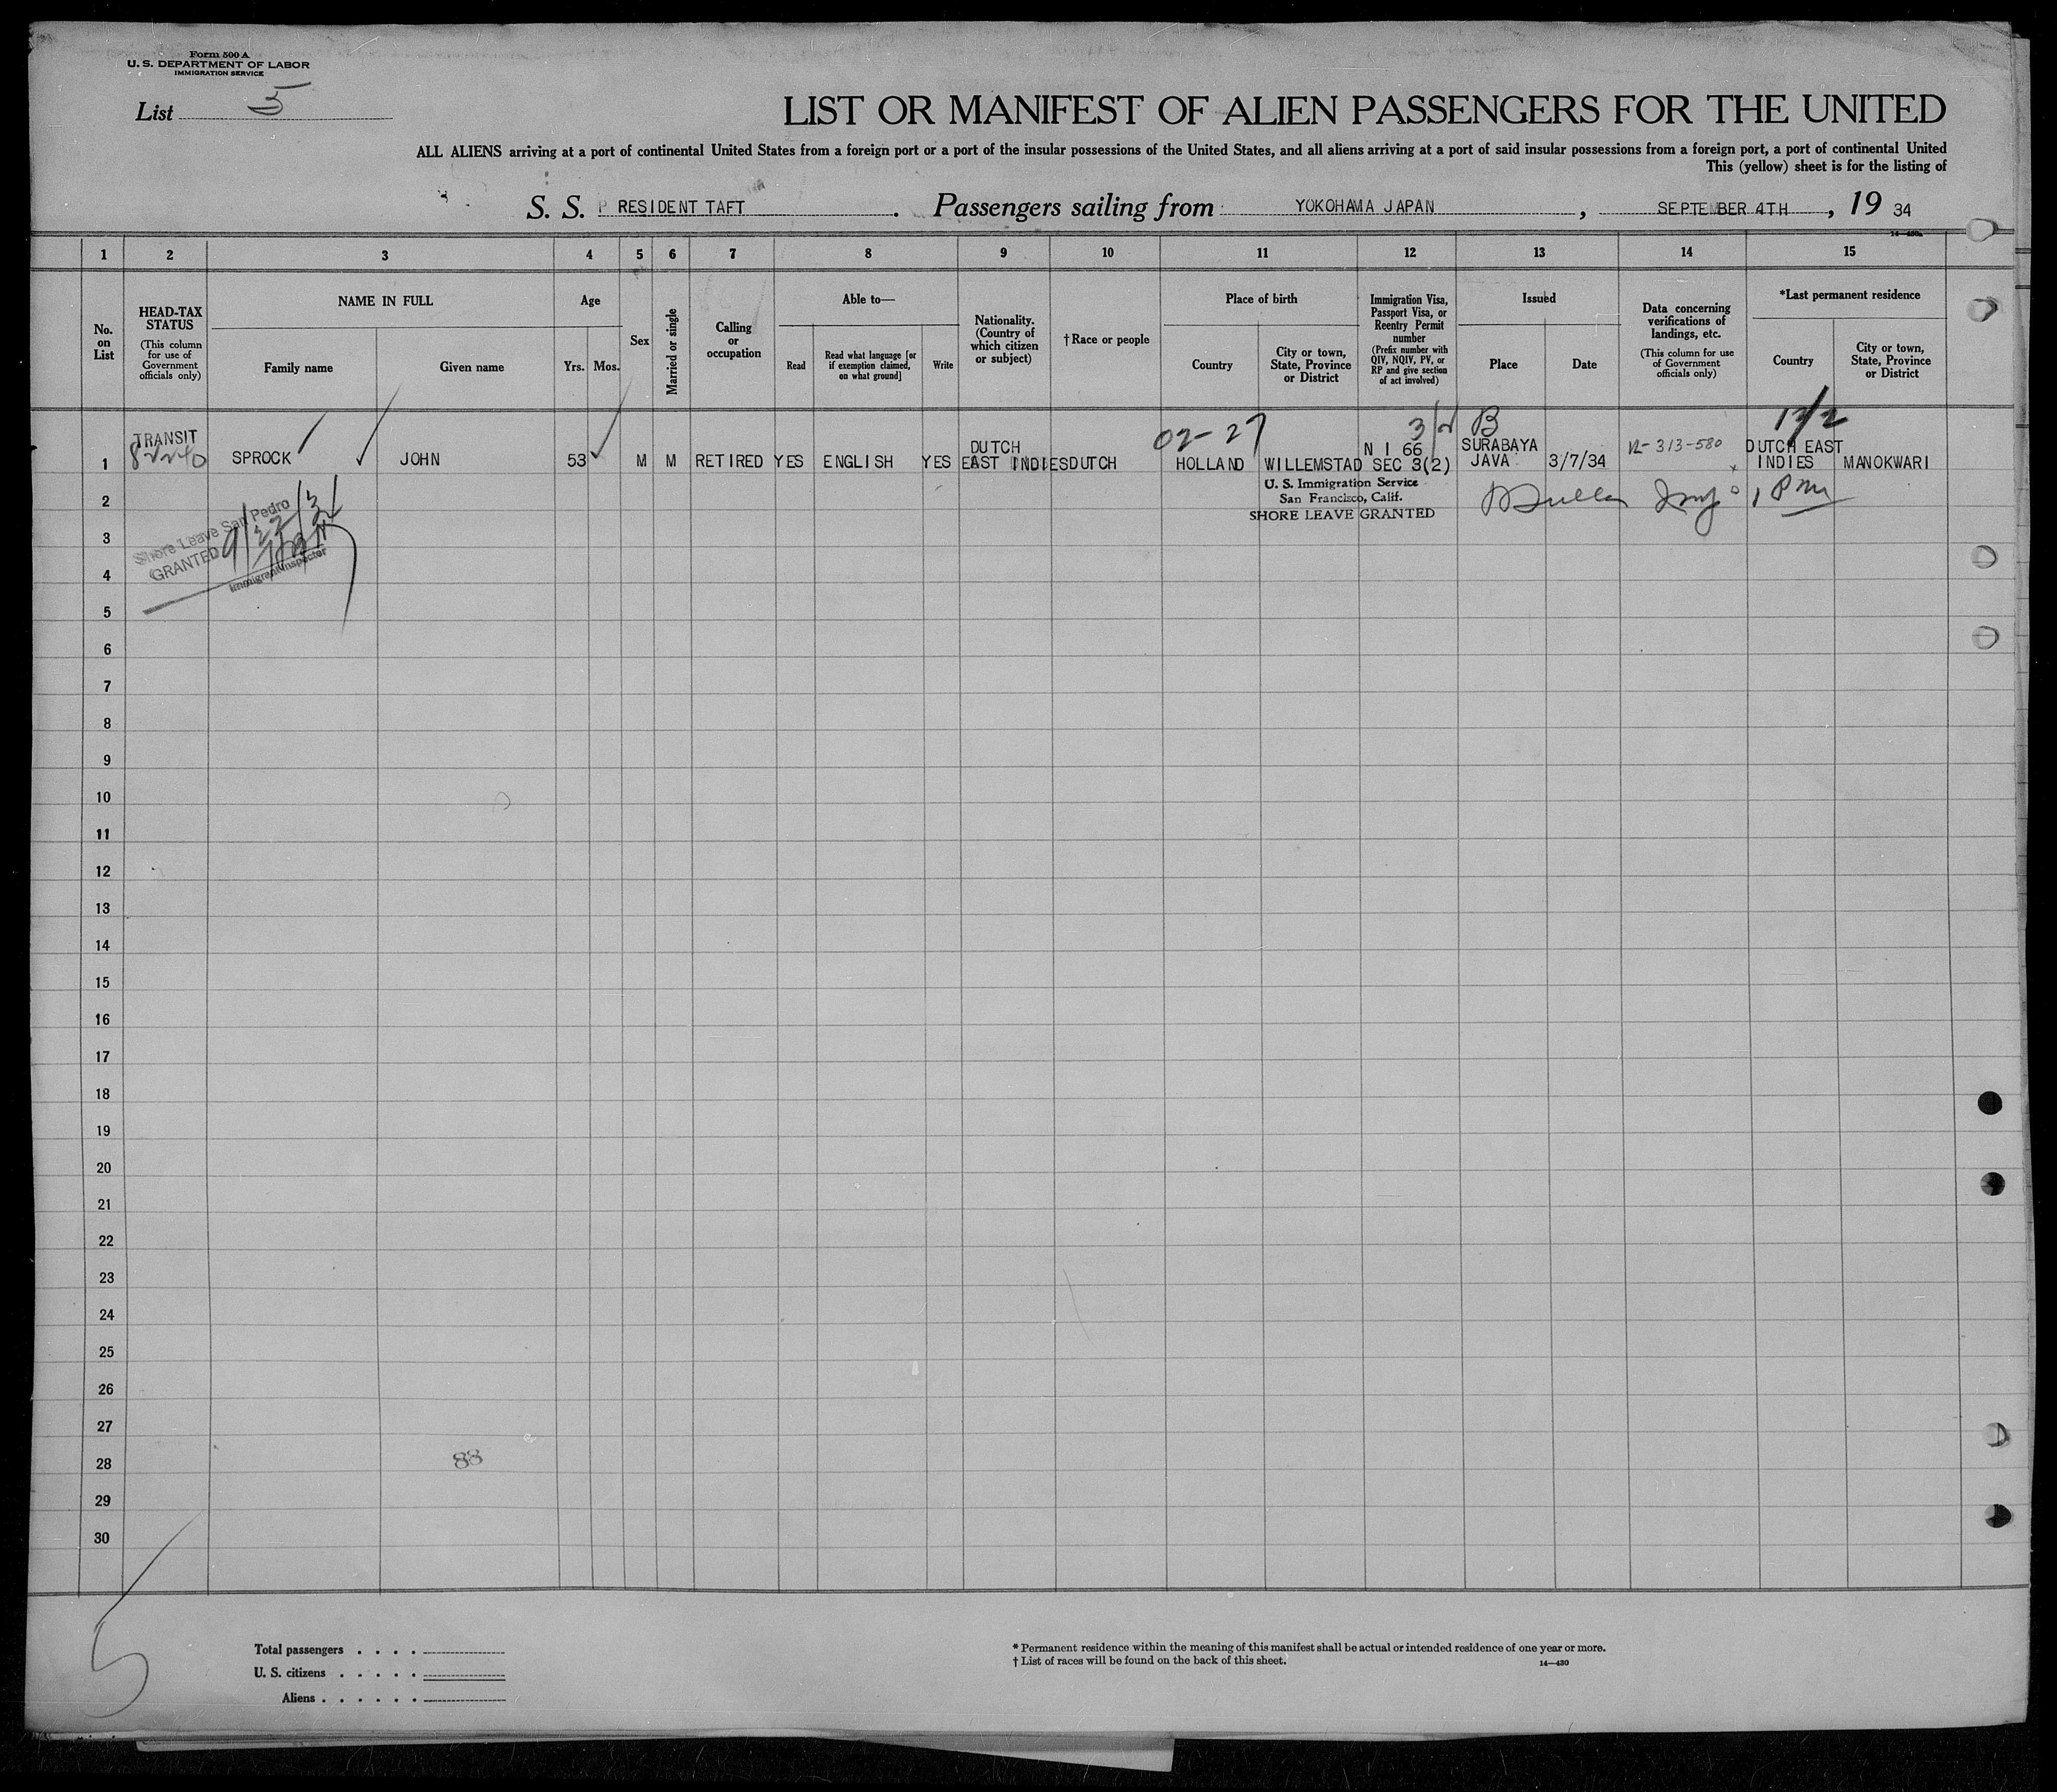 Form 500 A
U. S. DEPARTMENT OF LABOR
IMMIGRATION SERVICE
List 5
LIST OR MANIFEST OF ALIEN PASSENGERS FOR THE UNITED
ALL ALIENS arriving at a port of continental United States from a foreign port or a port of the insular possessions of the United States, and all aliens arriving at a port of said insular possessions from a foreign port, a port of continental United
This (yellow) sheet is for the listing of
S. S. PRESIDENT TAFT . Passengers sailing from YOKOHAMA JAPAN , SEPTEMBER 4TH , 19 34
14—430a
1 2 3 4 5 6 7 8 9 10 11 12 13 14 15
No. on List
HEAD-TAX STATUS
(This column for use of Government officials only)
NAME IN FULL
Family name
Given name
Age
Yrs. Mos.
Sex
Married or single
Calling or occupation
Able to—
Read
Read what language [or if exemption claimed, on what ground]
Write
Nationality. (Country of which citizen or subject)
†Race or people
Place of birth
Country
City or town, State, Province or District
Immigration Visa, Passport Visa, or Reentry Permit number
(Prefix number with QIV, NQIV, PV, or RP and give section of act involved)
Issued
Place
Date
Data concerning verifications of landings, etc.
(This column for use of Government officials only)
*Last permanent residence
Country
City or town, State, Province or District
02-27 B
TRANSIT DUTCH N I 66 SURABAYA DUTCH EAST
1 SPROCK JOHN 53 M M RETIRED YES ENGLISH YES EAST INDIES DUTCH HOLLAND WILLEMSTAD SEC 3(2) JAVA 3/7/34 INDIES MANOKWARI
U. S. Immigration Service
San Francisco, Calif.
SHORE LEAVE GRANTED
2
Shore Leave San Pedro
GRANTED
Immigrant Inspector
3
4
5
6
7
8
9
10
11
12
13
14
15
16
17
18
19
20
21
22
23
24
25
26
27
28 88
29
30
5
Total passengers . . . .
U. S. citizens . . . . .
Aliens . . . . . .
* Permanent residence within the meaning of this manifest shall be actual or intended residence of one year or more.
† List of races will be found on the back of this sheet.
14—430